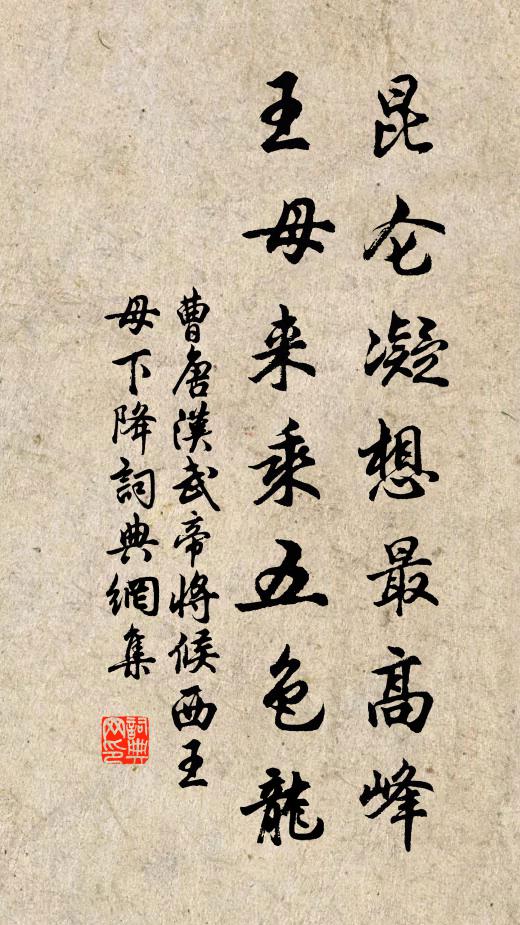 昆仑凝想最高峰
王母来乘五色龍
曹唐漢武帝將候西王
母下降詞典網集
詞典
网印